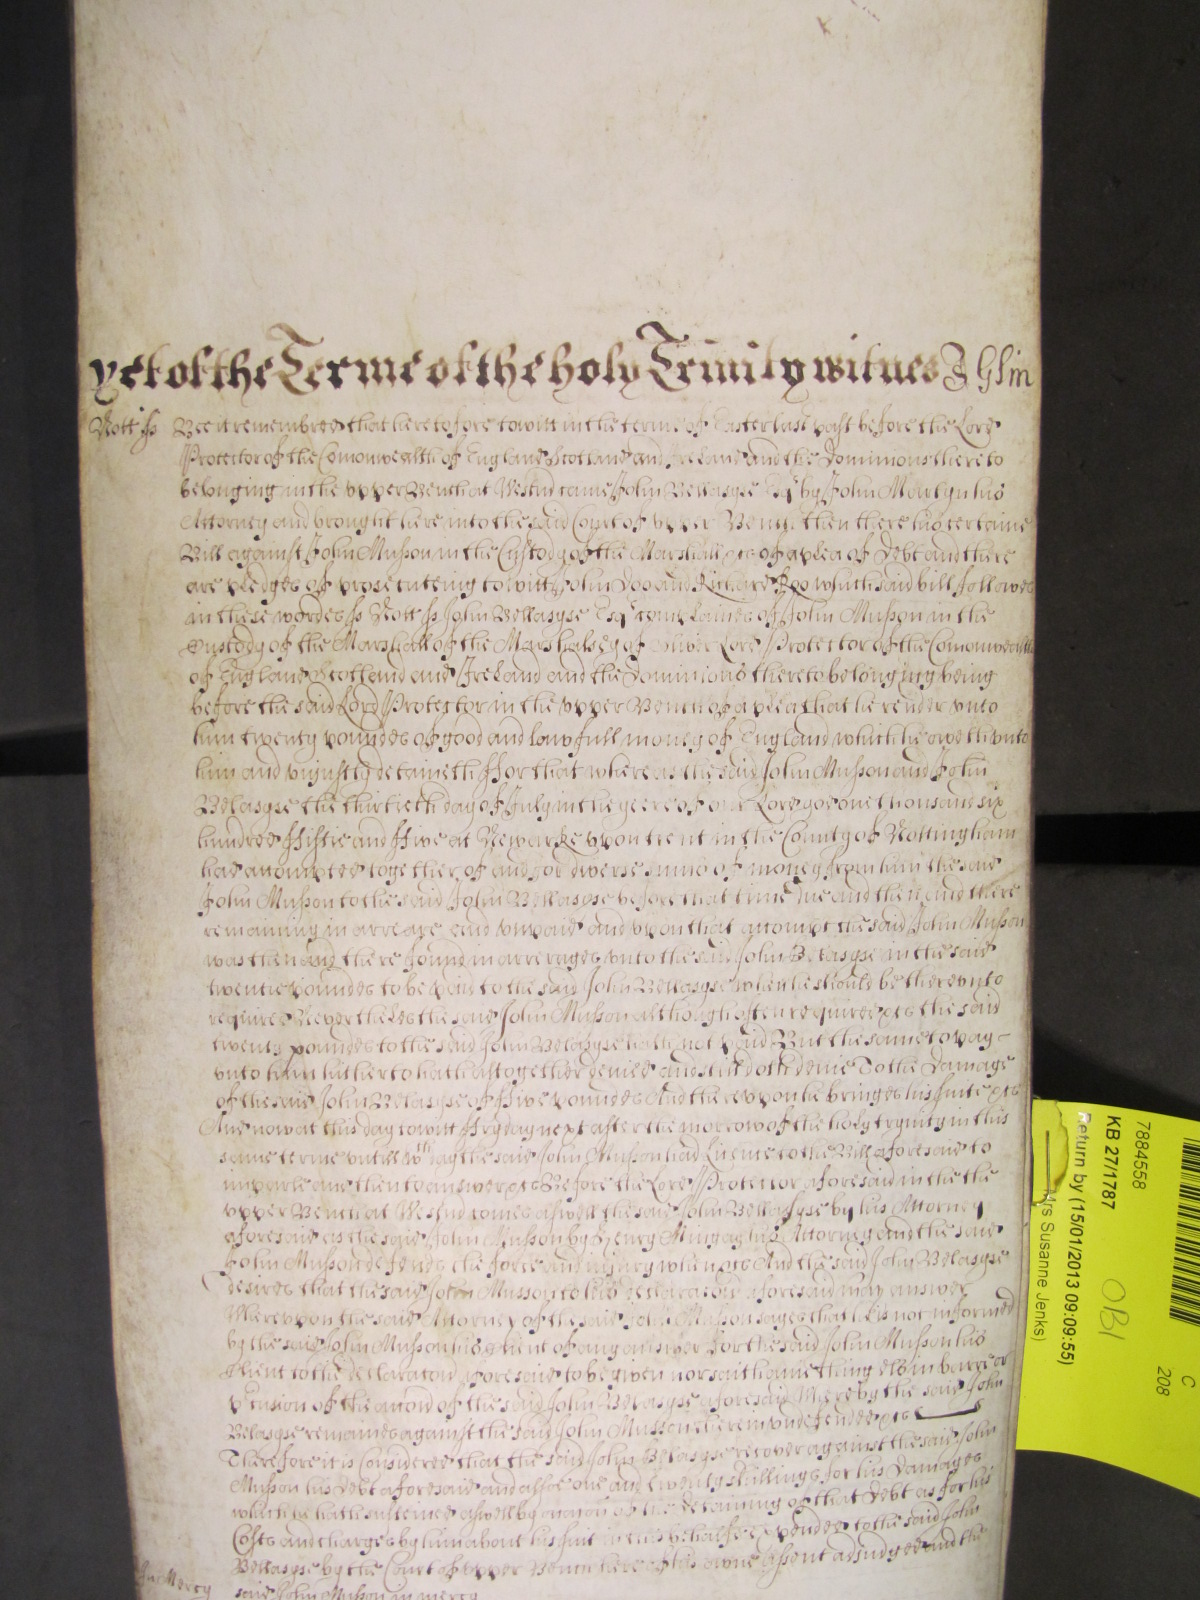 yet of the Terme of the holy Trinity witnes J Glin
Nott ss Bee it remembred that heretofore towitt in the terme of Easter last past before the Lord
Protector of the Comonwealth of England Scotland and Ireland and the Dominions thereto
belonging in the vpper Bench at Westm̄ came John Bellasyse Esqr by John Martyn his
Attorney and brought here into the said Court of vpper Bench then there his certaine
Bill against John Musson in the Custody of the Marshall &c of a plea of Debt and there
are pledges of prosecuteing towitt John Doo and Richard Roo which said bill followes
in these wordes ss Nott ss John Bellasyse Esqr complaines of John Musson in the
Custody of the Marshall of the Marshalsey of Oliver Lord Protector of the Comonwealth
of England Scotland and Ireland and the Dominions thereto belonging being
before the said Lord Protector in the vpper Bench of a plea that he render vnto
him twenty poundes of good and lawfull money of England which he oweth vnto
him and vniustly detaineth ffor that whereas the said John Musson and John
Belasyse the thirtieth day of July in the yeere of our Lord god one thousand six
hundred ffiftie and ffive at Newarke vpon trent in the County of Nottingham
had accompted together of and for diverse sumes of money from him the said
John Musson to the said John Bellasyse before that time due and then and there
remaining in arreare and vnpaid and vpon that accompt the said John Musson
was then and there found in arrerages vnto the said John Belasyse in the said
twentie poundes to be paid to the said John Bellasyse when he should be therevnto
required Neverthelesse the said John Musson although often required &c the said
twenty poundes to the said John Belasyse hath not paid But the same to pay
vnto him hitherto hath altogether denied and still doth denie To the Damage
of the said John Belasyse of ffive poundes And therevpon he bringes his suite &c
And now at this day towitt ffryday next after the morrow of the holy trynity in this
same terme vntill wch day the said John Musson had License to the Bill aforesaid to
imparle and then to answer &c Before the Lord Protector aforesaid in the the
vpper Bench at Westm̄ comes aswell the said John Bellasyse by his Attorney
aforesaid as the said John Musson by Henry Mingay his Attorney and the said
John Musson defends the force and iniury when &c And the said John Belasyse
desires that the said John Musson to his declaracon aforesaid may answer
Wherevpon the said Attorney of the said John Musson sayes that he is not informed
by the said John Musson his Client of any answer for the said John Musson his
Client to the declaracon aforesaid to be given nor saith any thing els in barre or
p̱clusion of the accon of the said John Belasyse aforesaid Whereby the said John
Belasyse remaines against the said John Musson therein vndefended &c
Therefore it is Considered that the said John Belasyse recover against the said John
Musson his Debt aforesaid and alsoe one and twenty shillings for his Damages
which he hath susteined aswell by occasion of the detaining of that Debt as for his
Costs and charges by him about his suit in this behalfe expended to the said John
Bellasyse by the Court of vpper Bench here of his owne assent adiudged and the
In Mercy said John Musson in mercy
7884558
KB 27/1787
Return by (15/01/2013 09:09:55)
Mrs Susanne Jenks)
OBI
C
208